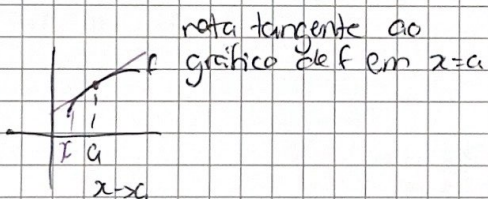 reta tangente ao
gráfico de f em x=a
f
x a
x→a